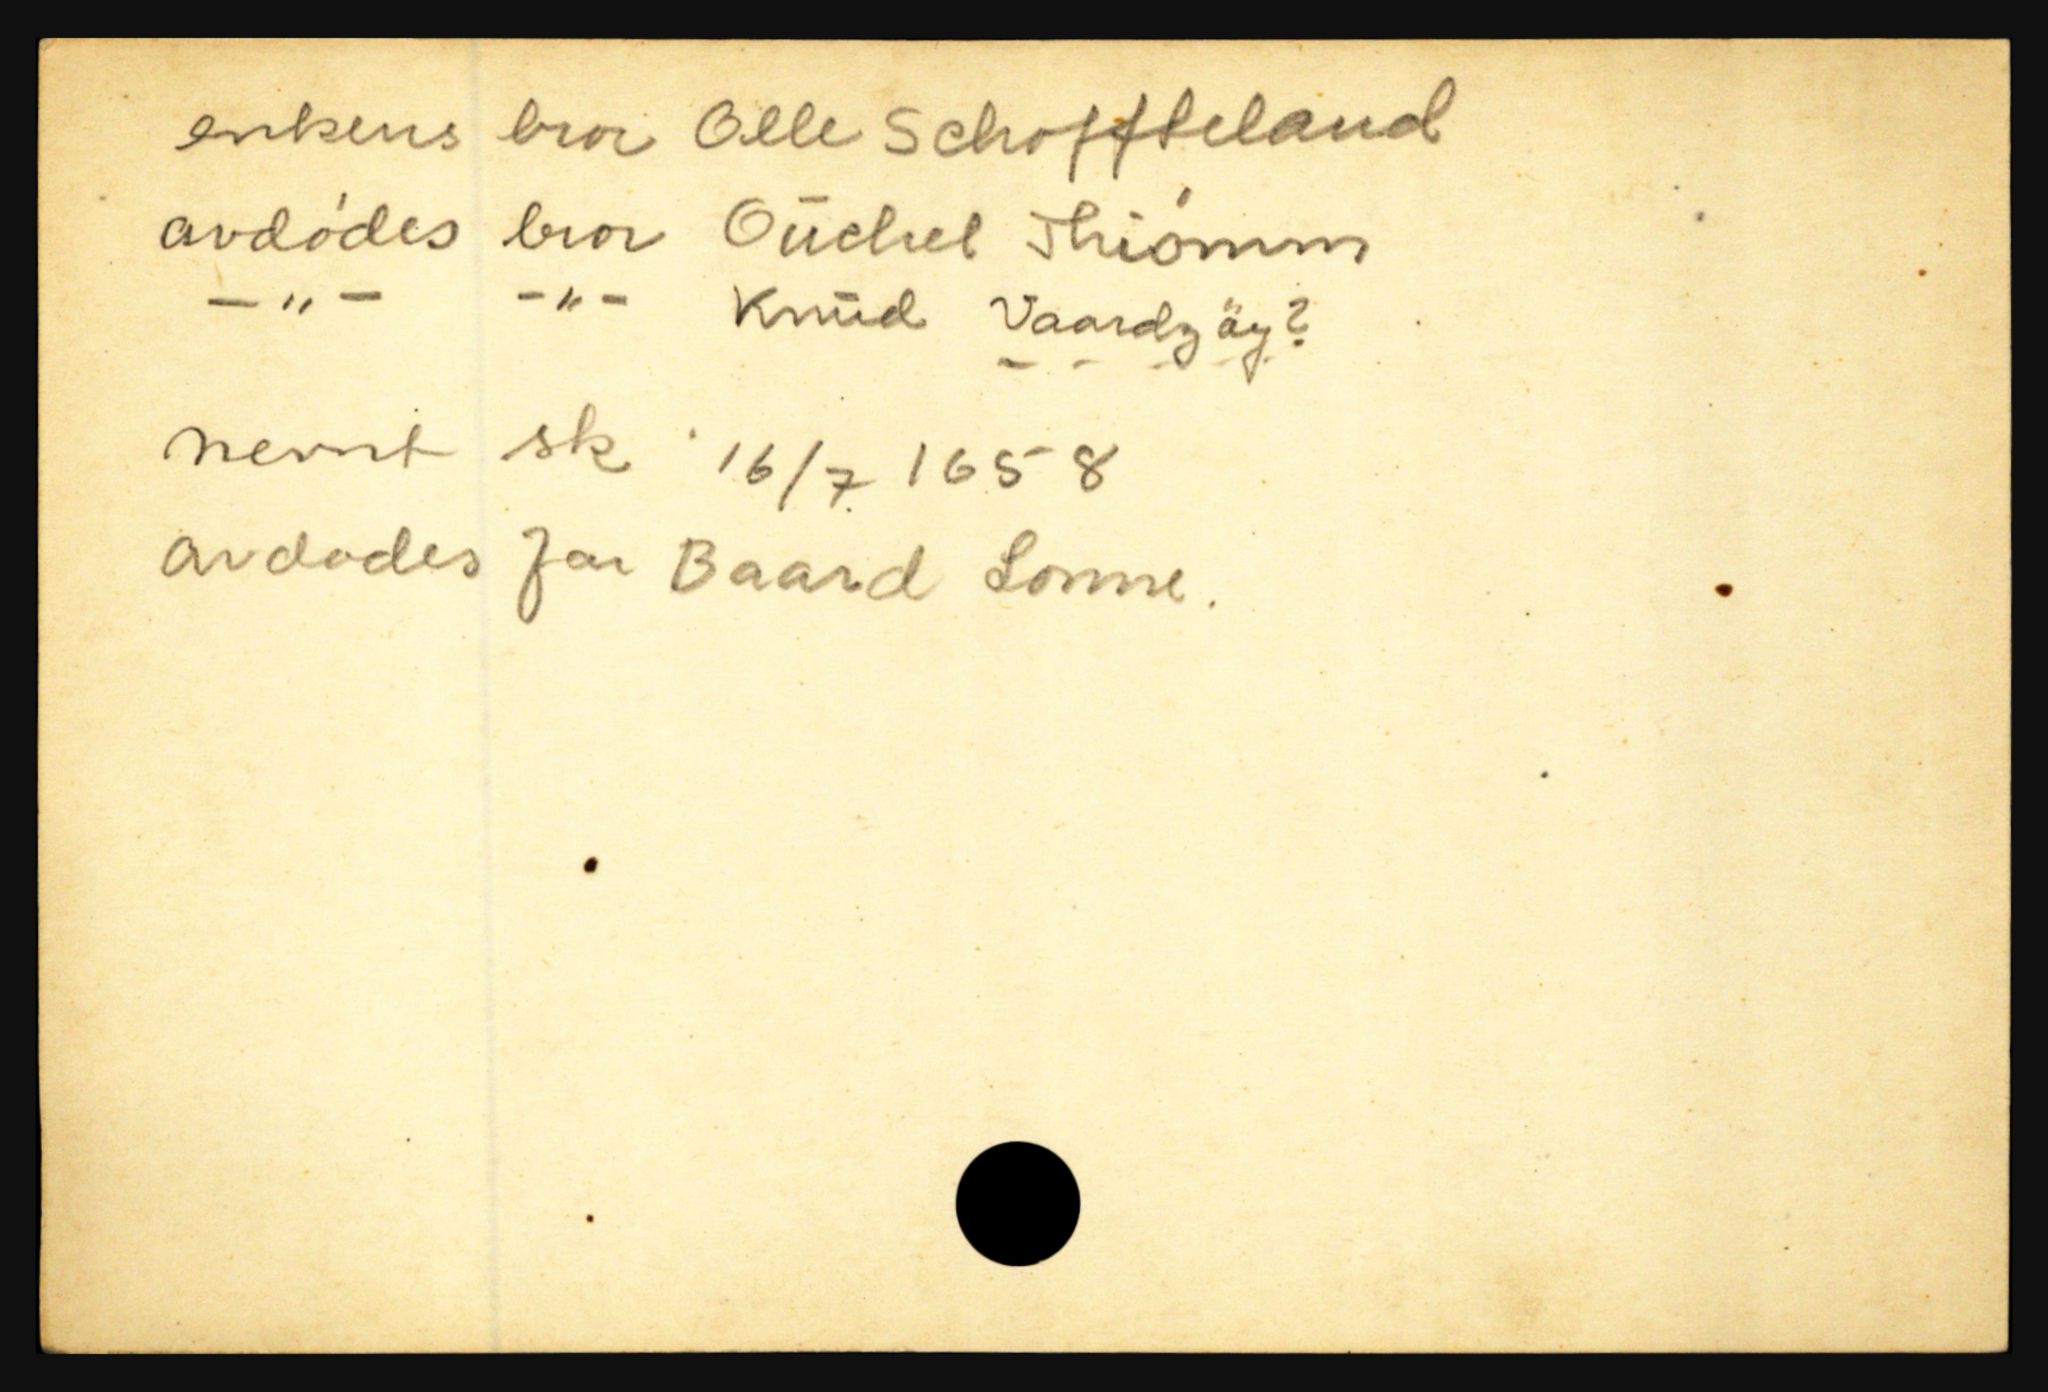 enkens bror Olle Schoffteland
avdódes bror Oüchel Thiómm
—"— -"- Knüd Vaardzäy?
nevnt sk 16/7 1658
avdodes far Baard Lonne.